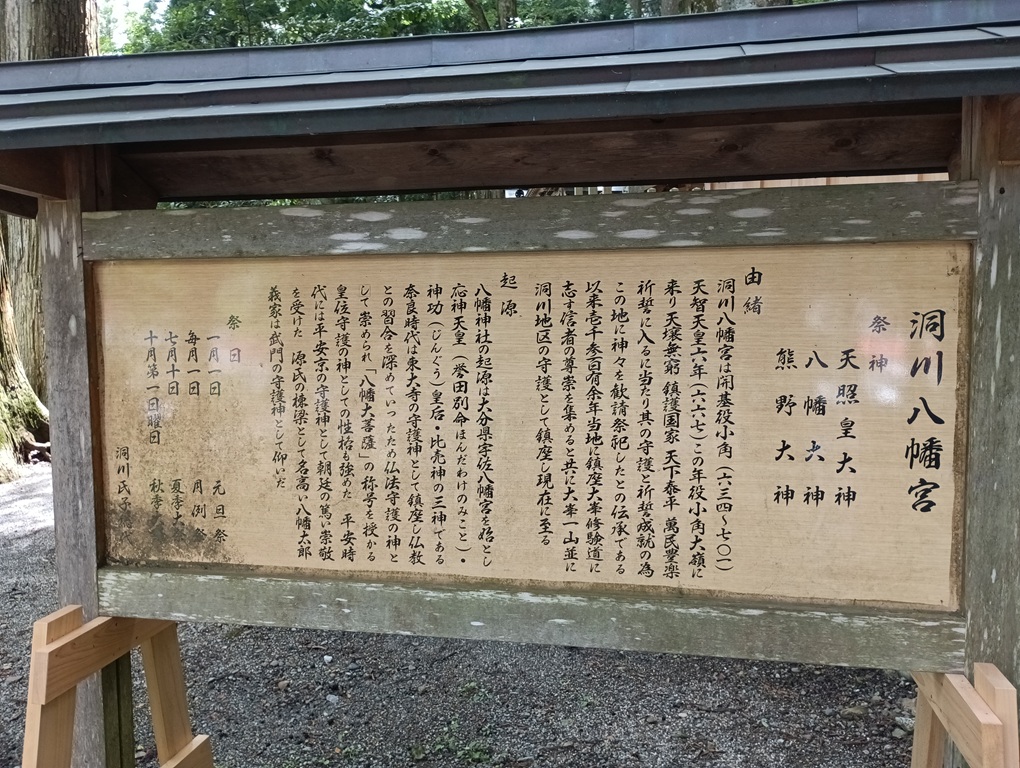 洞川八幡宮
祭神
天照皇大神
八幡大神
熊野大神
由緒
洞川八幡宮は開基役小角（六三四～七〇一）
天智天皇六年（六六七）この年役小角大嶺に
来り天壌無窮 鎮護国家 天下泰平 萬民豊楽
祈誓に入るに当たり其の守護と祈誓成就の為
この地に神々を歓請祭祀したとの伝承である
以来壱千参百有余年当地に鎮座大峯修験道に
志す信者の尊崇を集めると共に大峯一山並に
洞川地区の守護として鎮座し現在に至る
起源
八幡神社の起源は大分県宇佐八幡宮を始とし
応神天皇（誉田別命ほんだわけのみこと）・
神功（じんぐう）皇后・比売神の三神である
奈良時代は東大寺の守護神として鎮座し仏教
との習合を深めていったため仏法守護の神と
して崇められ「八幡大菩薩」の称号を授かる
皇位守護の神としての性格も強めた 平安時
代には平安京の守護神として朝廷の篤い崇敬
を受けた 源氏の棟梁として名高い八幡太郎
義家は武門の守護神として仰いだ
祭日
一月一日 元旦祭
毎月一日 月例祭
七月十日 夏季大
十月第一日曜日 秋季
洞川 氏子